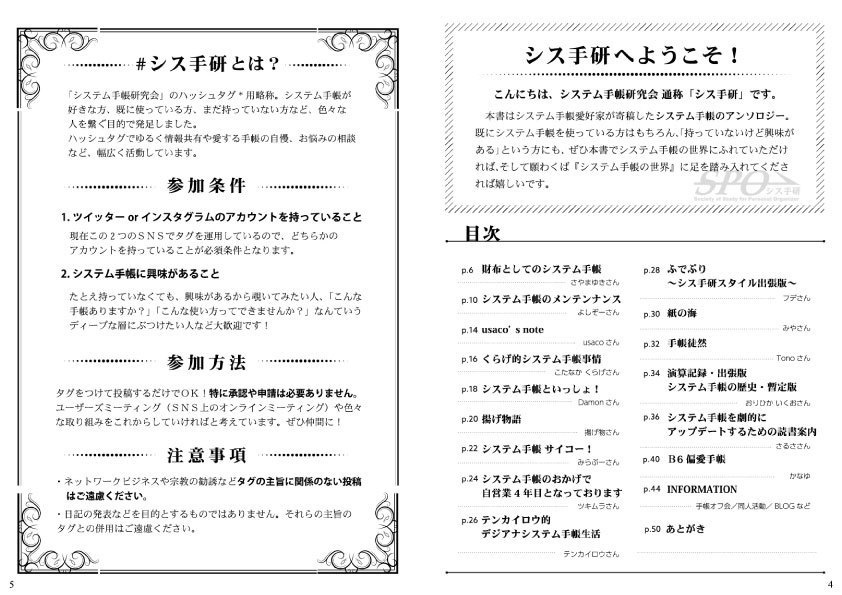 シス手研へようこそ！
こんにちは、システム手帳研究会 通称「シス手研」です。
本書はシステム手帳愛好家が寄稿したシステム手帳のアンソロジー。
既にシステム手帳を使っている方はもちろん、「持っていないけど興味が
ある」という方にも、ぜひ本書でシステム手帳の世界にふれていただけ
れば、そして願わくば『システム手帳の世界』に足を踏み入れてくださ
れば嬉しいです。
SPO シス手研
Society of Study for Personal Organizer
目次
p.6 財布としてのシステム手帳
さやまゆきさん
p.10 システム手帳のメンテンナンス
よしぞーさん
p.14 usaco’s note
usaco さん
p.16 くらげ的システム手帳事情
こたなか くらげさん
p.18 システム手帳といっしょ！
Damon さん
p.20 揚げ物語
揚げ物さん
p.22 システム手帳 サイコー！
みらぶーさん
p.24 システム手帳のおかげで
自営業 4 年目となっております
ツキムラさん
p.26 テンカイロウ的
デジアナシステム手帳生活
テンカイロウさん
p.28 ふでぶり
～シス手研スタイル出張版～
フデさん
p.30 紙の海
みやさん
p.32 手帳徒然
Tono さん
p.34 演算記録・出張版
システム手帳の歴史・暫定版
おりひか いくおさん
p.36 システム手帳を劇的に
アップデートするための読書案内
さるささん
p.40 B6 偏愛手帳
かなゆ
p.44 INFORMATION
手帳オフ会／同人活動／ BLOG など
p.50 あとがき
4
#シス手研とは？
「システム手帳研究会」のハッシュタグ＊用略称。システム手帳が
好きな方、既に使っている方、まだ持っていない方など、色々な
人を繋ぐ目的で発足しました。
ハッシュタグでゆるく情報共有や愛する手帳の自慢、お悩みの相談
など、幅広く活動しています。
参加条件
1. ツイッター or インスタグラムのアカウントを持っていること
現在この２つのＳＮＳでタグを運用しているので、どちらかの
アカウントを持っていることが必須条件となります。
2. システム手帳に興味があること
たとえ持っていなくても、興味があるから覗いてみたい人、「こんな
手帳ありますか？」「こんな使い方ってできませんか？」なんていう
ディープな層にぶつけたい人など大歓迎です！
参加方法
タグをつけて投稿するだけでＯＫ！特に承認や申請は必要ありません。
ユーザーズミーティング（ＳＮＳ上のオンラインミーティング）や色々
な取り組みをこれからしていければと考えています。ぜひ仲間に！
注意事項
・ネットワークビジネスや宗教の勧誘などタグの主旨に関係のない投稿
はご遠慮ください。
・日記の発表などを目的とするものではありません。それらの主旨の
タグとの併用はご遠慮ください。
5